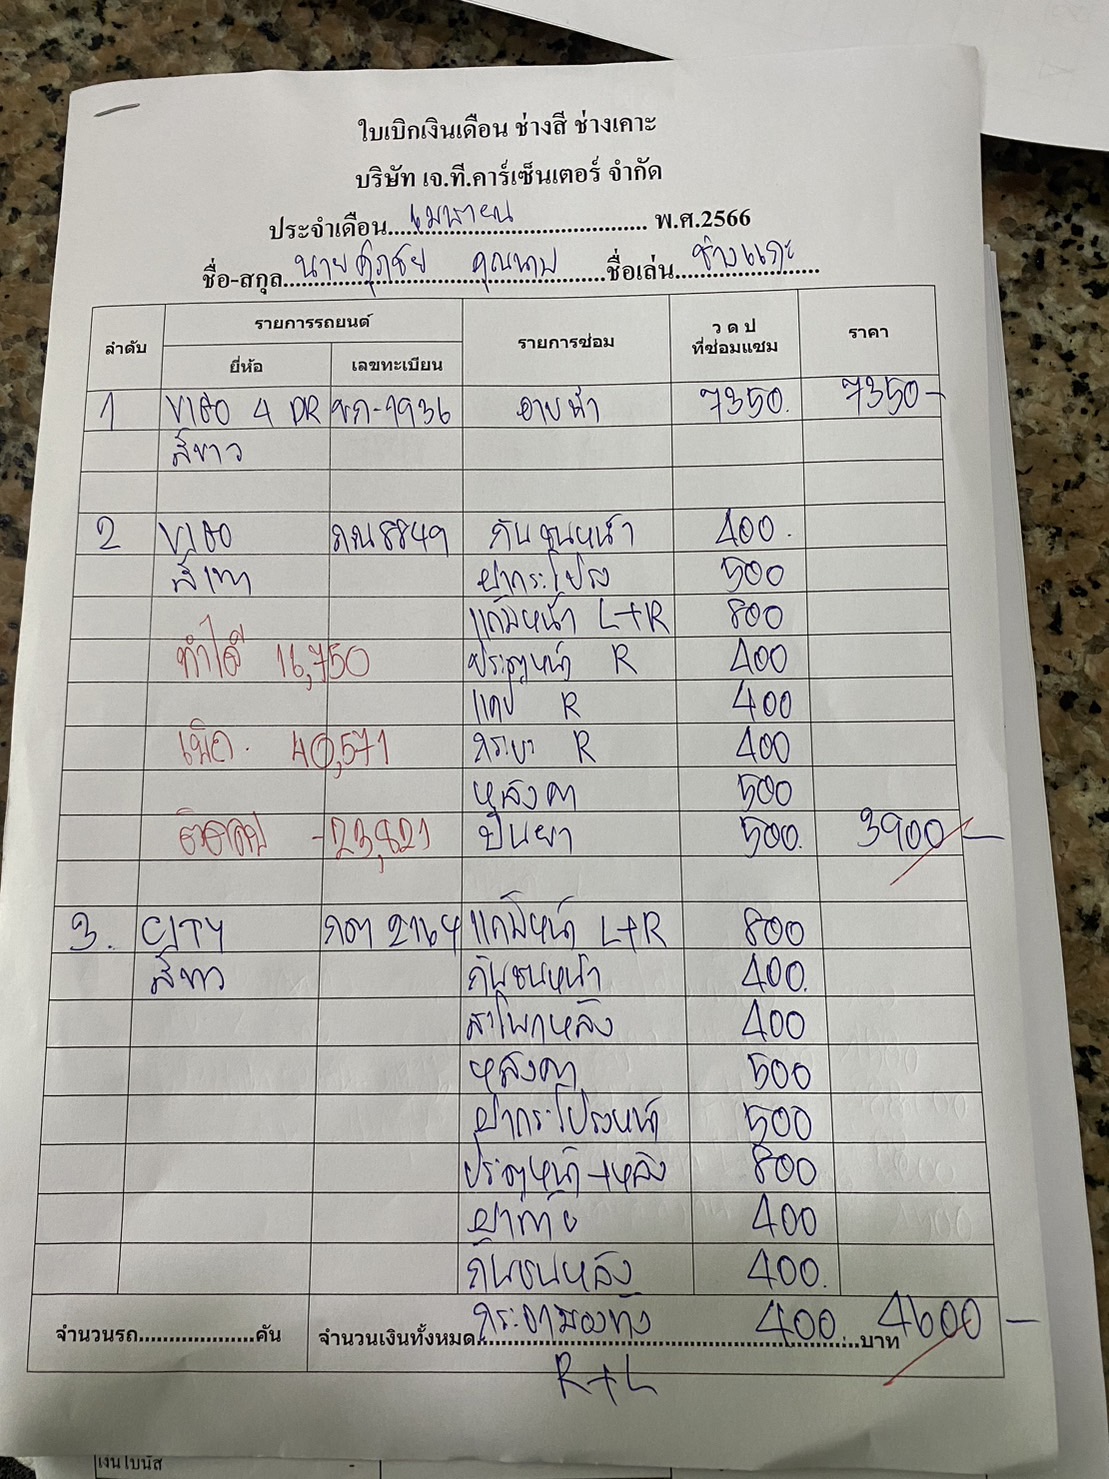 ใบเบิกเงินเดือน ช่างสี ช่างเคาะ
บริษัท เจ.ที.คาร์เซ็นเตอร์ จำกัด
ประจำเดือน...เมษายน... พ.ศ.2566
ชื่อ-สกุล...นายศุภชัย คุณนาม...ชื่อเล่น...ช่างแกะ...
ลำดับ รายการรถยนต์ รายการซ่อม ว ด ป ที่ซ่อมแซม ราคา
ยี่ห้อ เลขทะเบียน
1 VIGO 4 DR ขก-7936 อาบน้ำ 7350. 7350-
สีขาว
2 VIGO กน 8849 กันชนหน้า 400.
สีเทา ฝากระโปรง 500
แก้มหน้า L+R 800
ทำได้ 16,750 ประตูหน้า R 400
แคป R 400
เบิก. 40,571 กระบะ R 400
หลังคา 500
ติดลบ -23,821 ปั่นยา 500. 3900-
3. CITY กตา 2164 แก้มหน้า L+R 800
สีขาว กันชนหน้า 400.
สะโพกหลัง 400
หลังคา 500
ฝากระโปรงหน้า 500
ประตูหน้า+หลัง 800
ฝาท้าย 400
กันชนหลัง 400.
จำนวนรถ...คัน จำนวนเงินทั้งหมด...กระจกมองข้าง 400 4600-...บาท
R+L
เงินโบนัส -